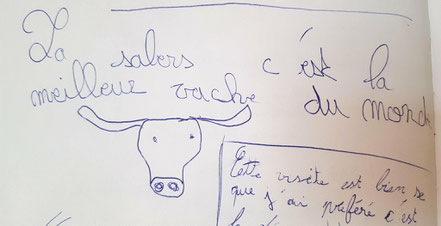 La salers c'est la
meilleur vache du monde
Cette visite est bien se
que j'ai préféré c'est